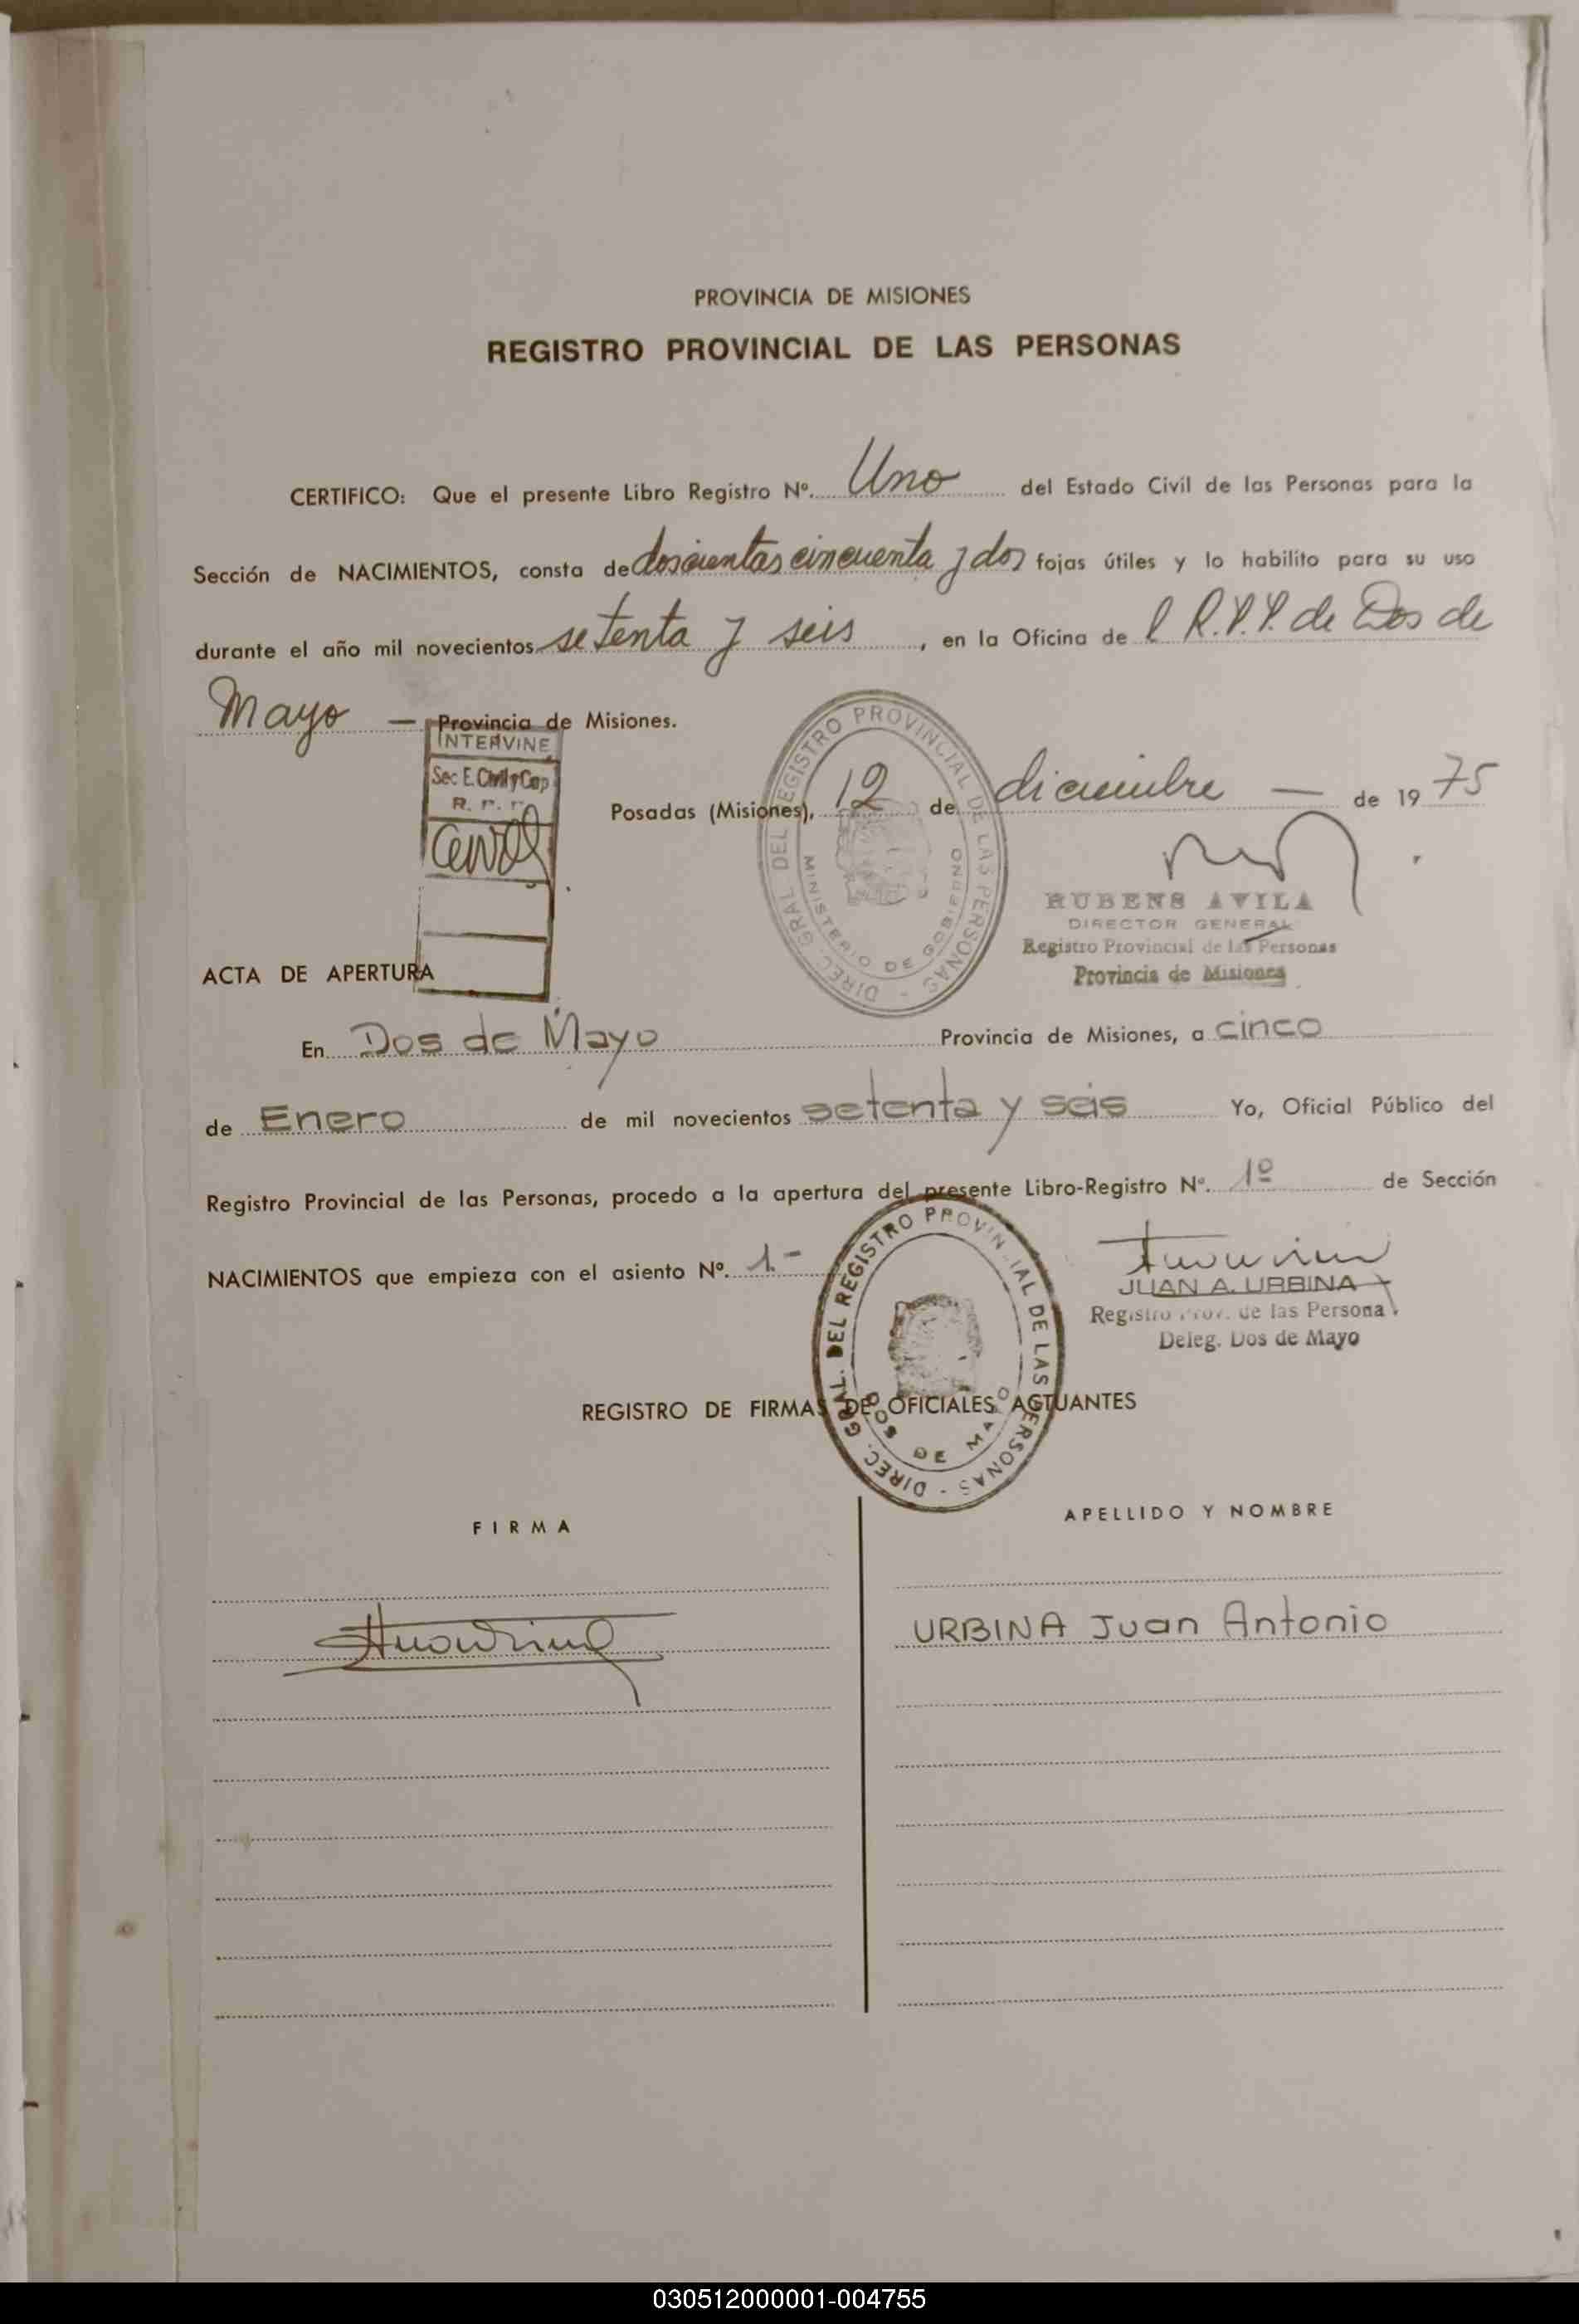 PROVINCIA DE MISIONES
REGISTRO PROVINCIAL DE LAS PERSONAS
CERTIFICO: Que el presente Libro Registro Nº. Uno del Estado Civil de las Personas para la
Sección de NACIMIENTOS, consta de doscientas cincuenta y dos fojas útiles y lo habilito para su uso
durante el año mil novecientos setenta y seis, en la Oficina de l R.P.P. de Dos de
Mayo — Provincia de Misiones.
INTERVINE
Sec E. Civil y Cap
R. P. P.
Posadas (Misiones), 12 de diciembre — de 1975
DIREC. GRAL. DEL REGISTRO PROVINCIAL DE LAS PERSONAS -
MINISTERIO DE GOBIERNO
RUBENS AVILA
DIRECTOR GENERAL
Registro Provincial de las Personas
Provincia de Misiones
ACTA DE APERTURA
En Dos de Mayo Provincia de Misiones, a cinco
de Enero de mil novecientos setenta y seis Yo, Oficial Público del
Registro Provincial de las Personas, procedo a la apertura del presente Libro-Registro Nº. 1º de Sección
NACIMIENTOS que empieza con el asiento Nº. 1.-
DIREC. GRAL. DEL REGISTRO PROVINCIAL DE LAS PERSONAS -
DOS DE MAYO
JUAN A. URBINA
Registro Prov. de las Persona
Deleg. Dos de Mayo
REGISTRO DE FIRMAS DE OFICIALES ACTUANTES
FIRMA
APELLIDO Y NOMBRE
URBINA Juan Antonio
030512000001-004755